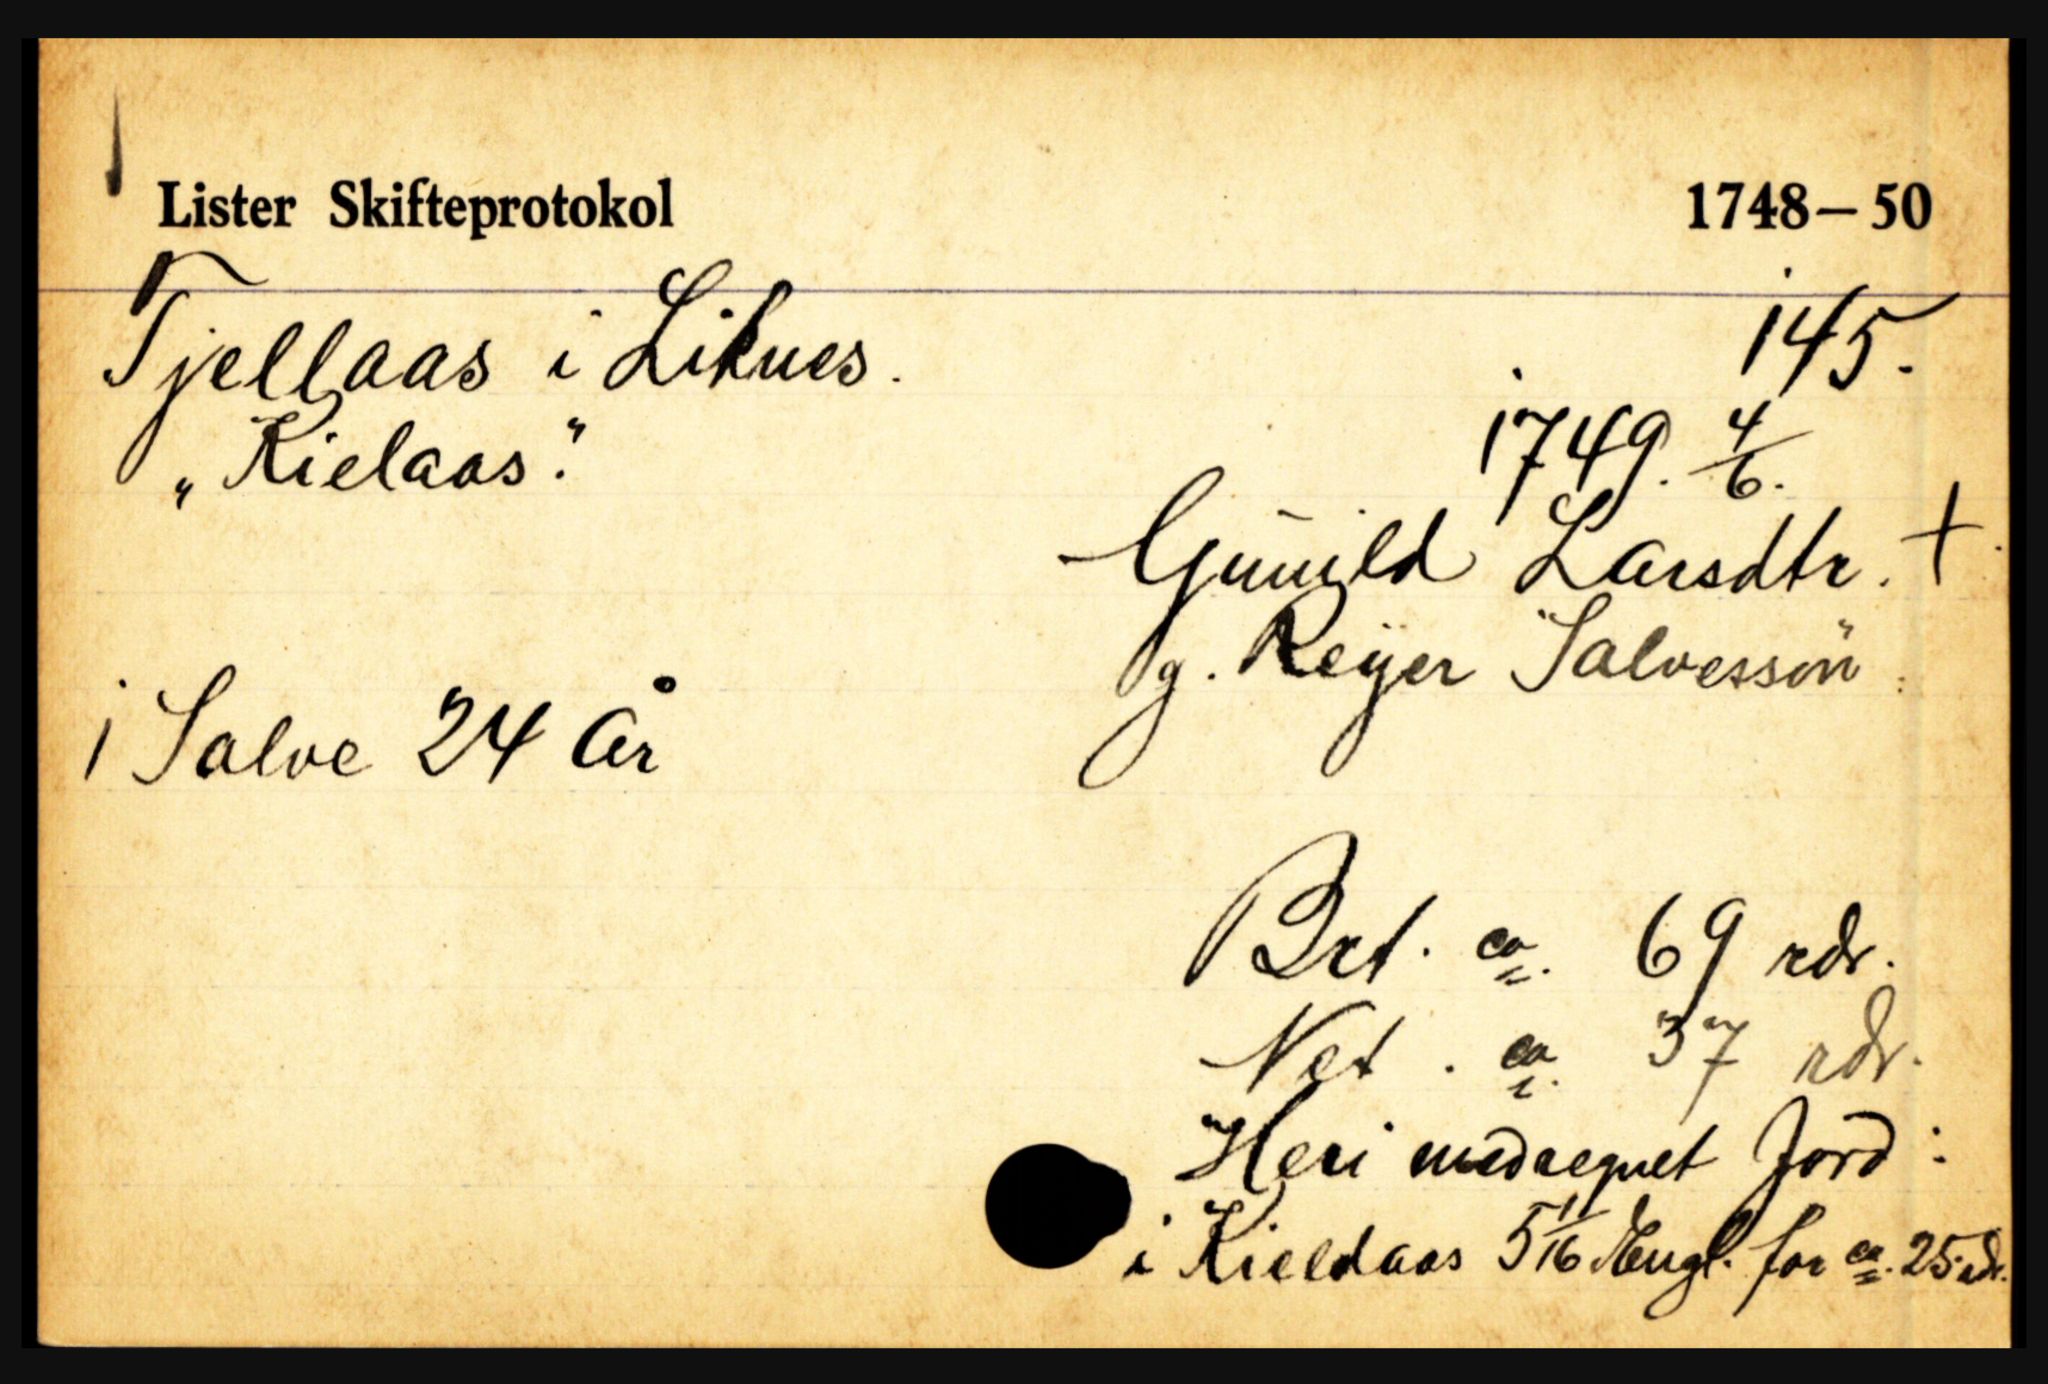 Lister Skifteprotokol 1748-50
Tjellaas i Liknes. 145.
„Kielaas". 1749. 4/6.
Gunild Larsdtr. +
g. Reyer Salvessön
1 Salve 24 år
Brt. ca. 69 rdr.
Net. ca. 37 rdr.
Heri medregnet Jord:
i Kieldaas 5 1/16 Eugl. for ca. 25 rdr.